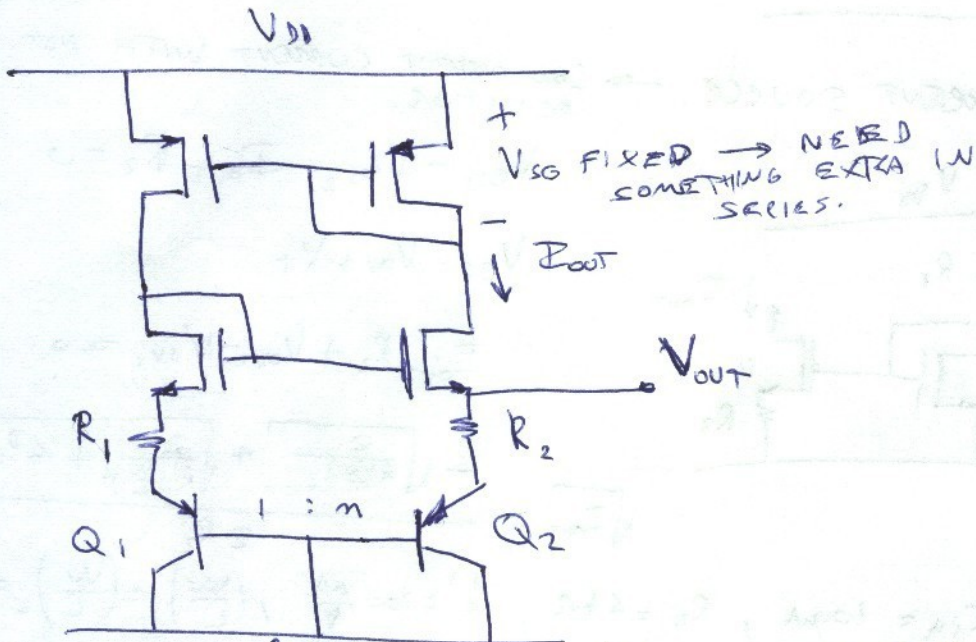 V_DD
+
V_SG FIXED → NEED
SOMETHING EXTRA IN
SERIES.
−
I_OUT
V_OUT
R_1
R_2
1 : n
Q_1
Q_2